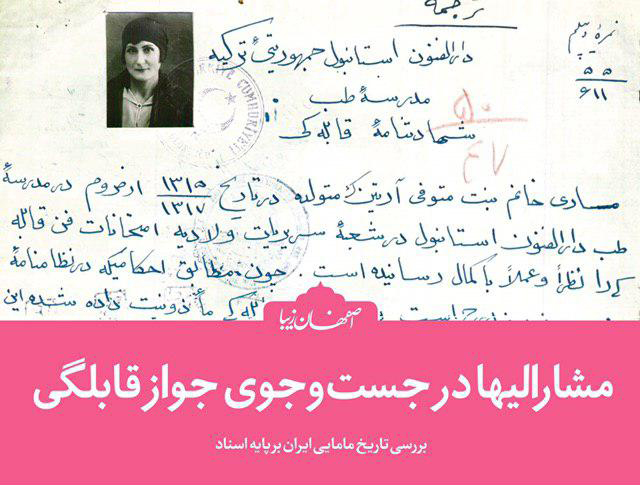 ترجمة
نمرۀ دیپلم
۵۵
۶۱۱
دارالفنون استانبول جمهوریتی ترکیه
مدرسۀ طب
شهادتنامۀ قابله کی
۵۰
۴۷
CUMHURİYETİ
ماری خانم بنت متوفی آرتین که متولده در تاریخ ۱۳۱۵ ارضروم در مدرسۀ
۱۳۱۷
طب دارالفنون استانبول در شعبۀ سریریات ولادیه امتحانات فن قابله
کی را نظراً و عملاً با کمال رسانیده است. چون مطابق احکامیکه در نظامنامۀ
قابله کی مأذونیت داده شده این
است
اصفهان زیبا
مشارالیها در جست‌وجوی جواز قابلگی
بررسی تاریخ مامایی ایران بر پایه اسناد